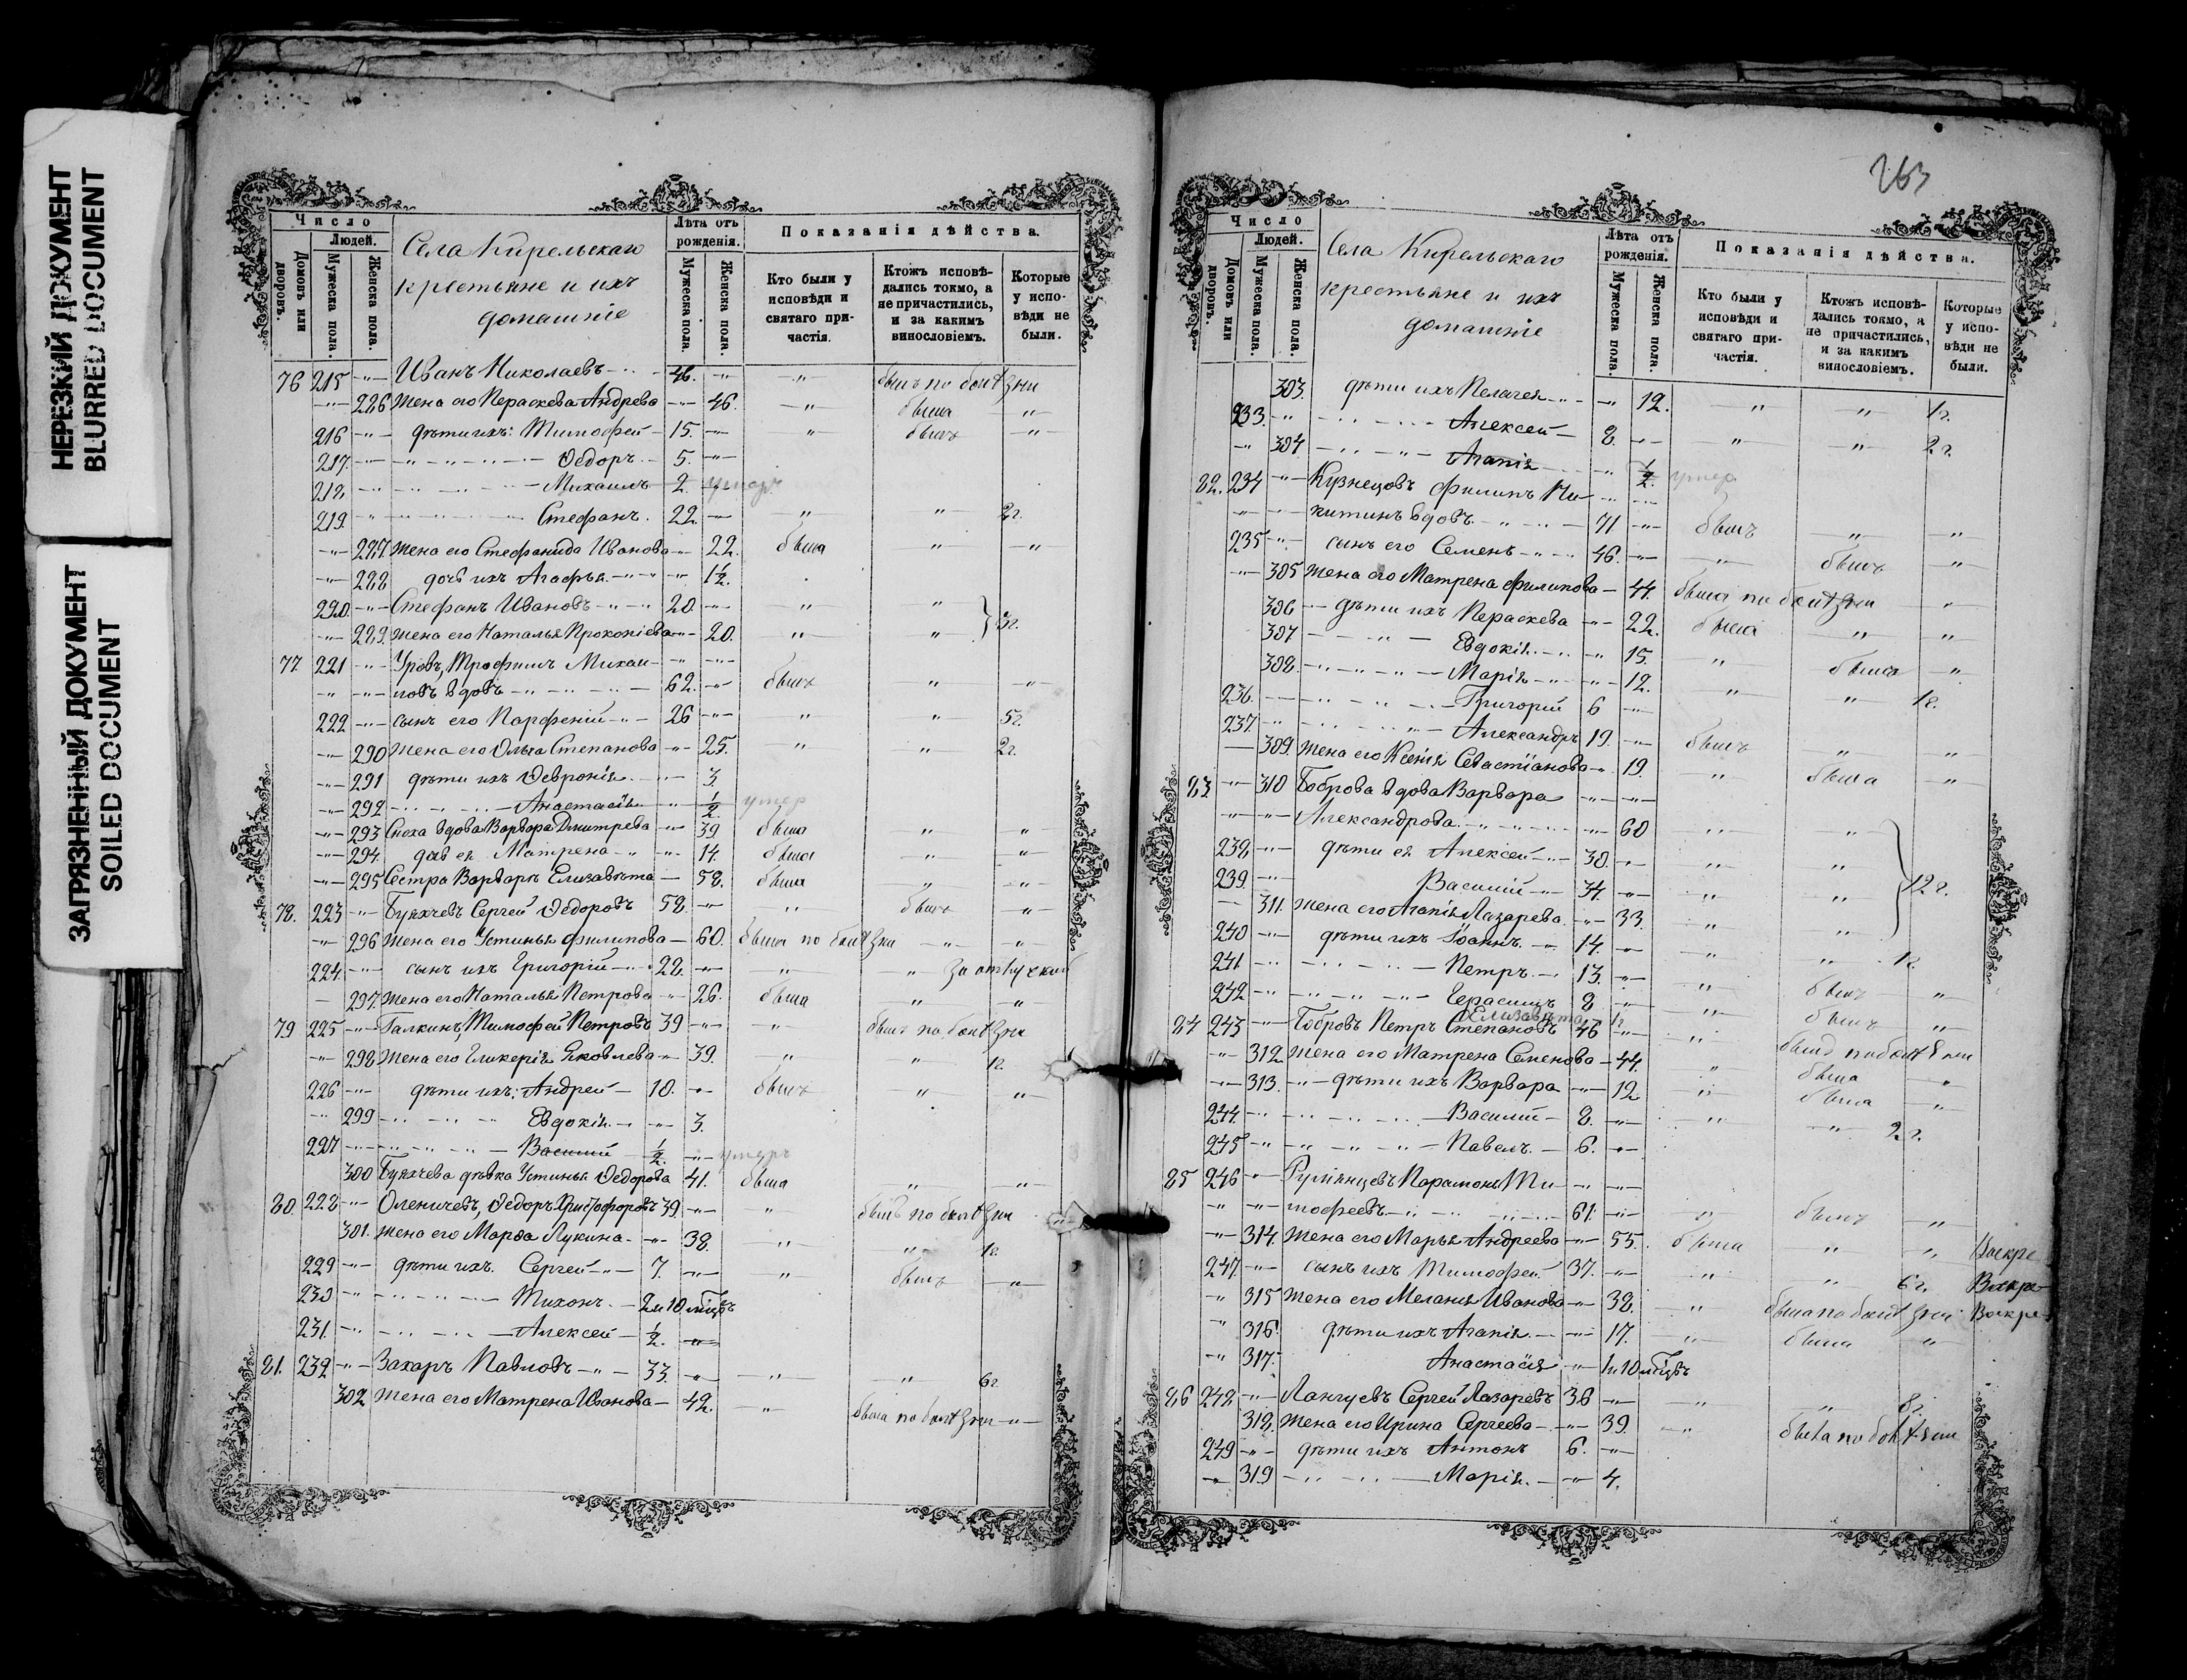 НЕРЕЗКИЙ ДОКУМЕНТ
BLURRED DOCUMENT
ЗАГРЯЗНЕННЫЙ ДОКУМЕНТ
SOILED DOCUMENT
Число
Людей.
Домовъ или дворовъ.
Мужеска пола.
Женска пола.
Села Кирельскаго
крестьяне и ихъ
домашніе
Лѣта отъ рожденія.
Мужеска пола.
Женска пола.
Показанія дѣйства.
Кто были у исповѣди и святаго причастія.
Ктожъ исповѣдались токмо, а не причастились, и за какимъ винословіемъ.
Которые у исповѣди не были.
76 215 -"- Иванъ Николаевъ 46. -"- -"- былъ по болѣзни
-"- 286 жена его Пераскева Андрева -"- 46. -"- была -"-
216 -"- дѣти ихъ: Тимофей 15. -"- " былъ -"-
217. -"- Ѳедоръ 5. -"-
218. -"- Михаилъ 2. умеръ
219. -"- Стефанъ. 22. -"- -"- -"- 2г.
-"- 287 жена его Стефанида Иванова -"- 22. была -"- -"-
-"- 288 дочь ихъ Агафья. -"- 1½.
220. -"- Стефанъ Ивановъ 20. -"- " "
-"- 289. жена его Наталья Прокопіева -"- 20. " " } 3г.
77 221 -"- Уровъ, Трофимъ Михаи- -"- -"-
-"- -"- ловъ вдовъ 62. -"- былъ -"- -"-
222 -"- сынъ его Парфеній 26 -"- " " 5г.
-"- 290 жена его Ольга Степанова -"- 25. " " 2г.
-"- 291 дѣти ихъ Ѳевронія. -"- 3
-"- 292 Анастасія -"- ½ умер
-"- 293 Сноха вдова Варвара Дмитрева -"- 39 была " "
-"- 294. дочь ея Матрена -"- 14. была " "
-"- 295 Сестра Варвары Елизавета - 58. была -"- -"-
78. 223 -"- Ѳедоровъ 58. -"- " былъ -"-
-"- 296 жена его Устинья Филипова - 60. была по болѣзни -"- -"-
224 -"- сынъ ихъ Григорій 22. -"- " "
- 297. жена его Наталья Петрова -"- 26. была " "
79 225 -"- Галкинъ, Тимофей Петровъ 39 -"- -"- былъ по болѣзни
-"- 298 жена его Гликерія Яковлева -"- 39. " " 1г.
226 -"- дѣти ихъ: Андрей 10. -"- былъ " "
-"- 299 Евдокія. -"- 3.
227 -"- Василій ½. -"- умеръ
300 дѣвка Устинья Ѳедорова 41. была -"- -"-
80. 228 -"- Оленичевъ, Ѳедоръ Христофоровъ 39. -"- " былъ по болѣзни
301. жена его Марѳа Лукина -"- 38. " " 1г.
229 -"- дѣти ихъ. Сергей 7. -"- -"- былъ -"-
230 -"- Тихонъ 2 и 10 мѣцъ
231 -"- Алексей ½. -"-
81. 232 -"- Захаръ Павловъ 33. -"- " " 6г.
302 жена его Матрена Иванова - 42. -"- была по болѣзни -"-
263
Число
Людей.
Домовъ или дворовъ.
Мужеска пола.
Женска пола.
Села Кирельскаго
крестьяне и ихъ
домашніе
Лѣта отъ рожденія.
Мужеска пола.
Женска пола.
Показанія дѣйства.
Кто были у исповѣди и святаго причастія.
Ктожъ исповѣдались токмо, а не причастились, и за какимъ винословіемъ.
Которые у исповѣди не были.
303. дѣти ихъ Пелагея -"- 12. " " 1г.
233. -"- Алексей 8. -"- " " 2г.
-"- 304 Агапія -"- ½. умер
82. 234 -"- Кузнецовъ Филипъ Ни- -"- -"-
-"- -"- китинъ вдовъ 71 -"- былъ -"- "
235 -"- сынъ его Семенъ 46. -"- -"- былъ "
-"- 305 жена его Матрена Филипова - 44. была по болѣзни "
306 дѣти ихъ Пераскева -"- 22. была " "
307 Евдокія. -"- 15. " была "
308. Марія -"- 12. " " 1г.
236. Григорій 6 -"-
237. -"- Александръ 19. -"- былъ " "
309. жена его Ксенія Севастіанова -"- 19. " была "
83 -"- 310 Боброва вдова Варвара -"- -"-
-"- -"- Александрова -"- 60 " "
238 -"- дѣти ея Алексей 38. -"- " "
239. -"- Василій 34. -"- " " } 12г.
- 311. жена его Агапія Лазарева. -"- 33. " "
240 -"- дѣти ихъ Іоаннъ 14. -"- " " 1г.
241. Петръ 13. -"- " былъ "
242 -"- Герасимъ 8 -"- " былъ "
Елизавета
84 243 -"- Бобровъ Петръ Степановъ 46 -"- " былъ по болѣзни
-"- 312 жена его Матрена Семенова - 44. " была "
-"- 313. дѣти ихъ Варвара -"- 12 " была "
244. Василій 8. -"- " " 2г.
245 -"- Павелъ. 6. -"-
85 246 -"- Румянцевъ Парамонъ Ти- -"- -"-
-"- -"- мофеевъ 61. -"- " былъ "
-"- 314. жена его Марья Андреева -"- 55. была " "
247. -"- сынъ ихъ Тимофей 37. -"- " " 6г.
-"- 315 жена его Меланія Иванова -"- 38. -"- была по болѣзни
-"- 316. дѣти ихъ Агапія. -"- 17. -"- была "
-"- 317. Анастасія -"- 1 и 10 мѣцвъ
86 248 -"- Сергей Лазаревъ 36 -"- -"- -"- 8г.
318. жена его Ирина Сергеева -"- 39. -"- была по болѣзни
249 -"- дѣти ихъ Антонъ 6. -"-
-"- 319 Марія. -"- 4.